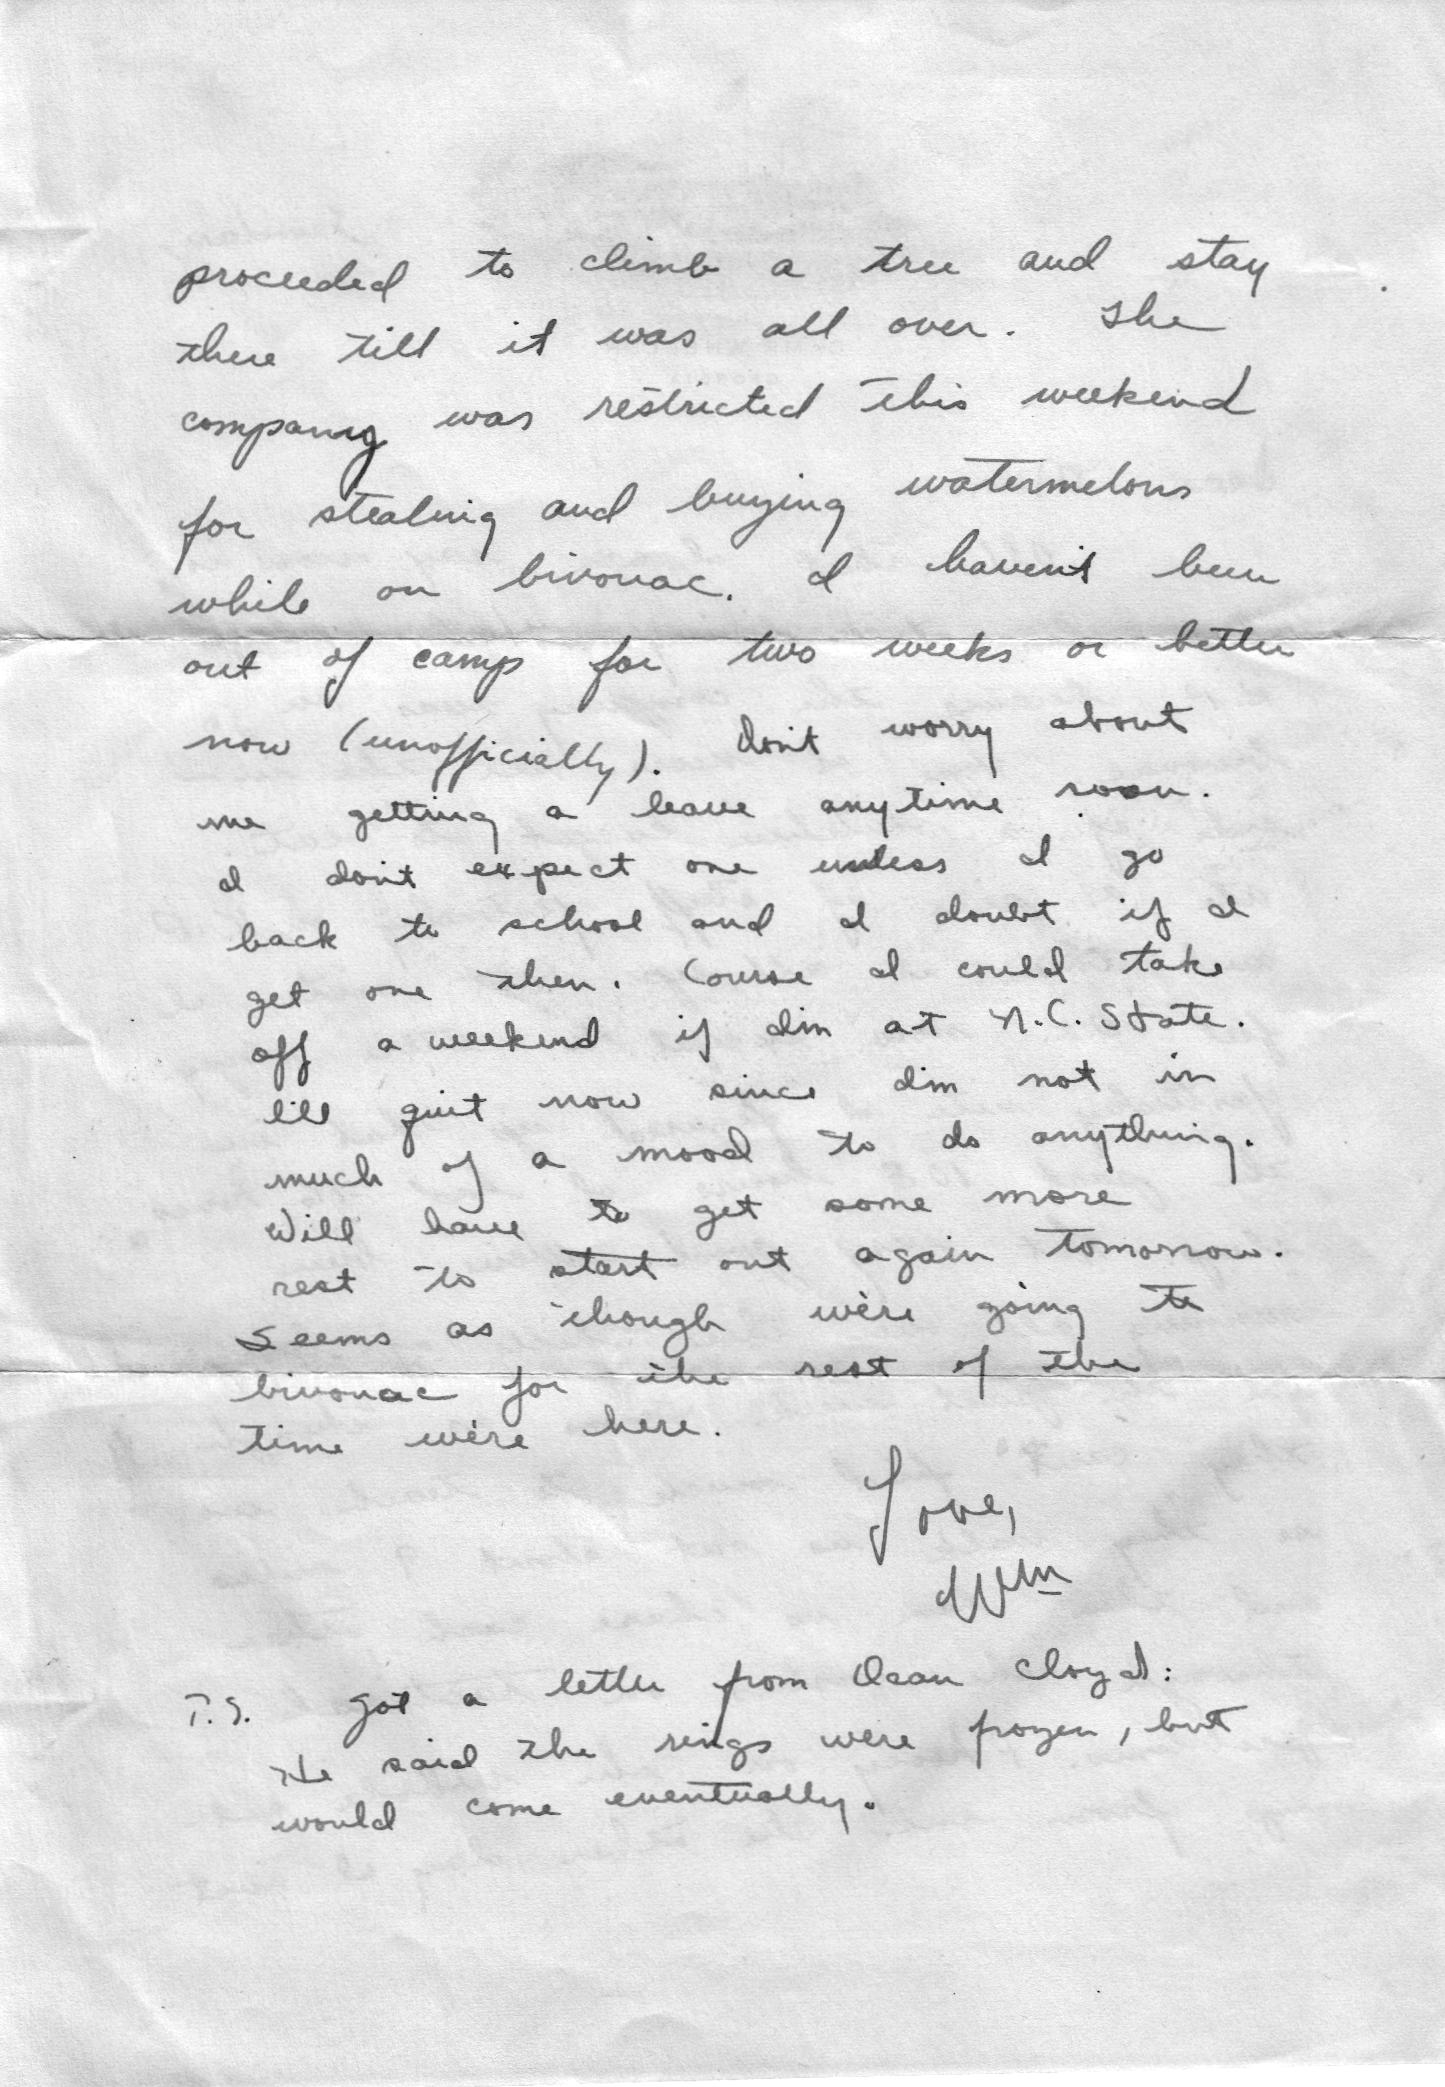 proceeded to climb a tree and stay
there till it was all over. The
company was restricted this weekend
for stealing and buying watermelons
while on bivouac. I haven't been
out of camp for two weeks or better
now (unofficially). Don't worry about
me getting a leave anytime soon.
I don't expect one unless I go
back to school and I doubt if I
get one then. Course I could take
off a weekend if I'm at N.C. State.
I'll quit now since I'm not in
much of a mood to do anything.
Will have to get some more
rest to start out again tomorrow.
Seems as though we're going to
bivouac for the rest of the
time we're here.
Love,
Wm
P.S. Got a letter from Dean Cloyd:
He said the rings were frozen, but
would come eventually.